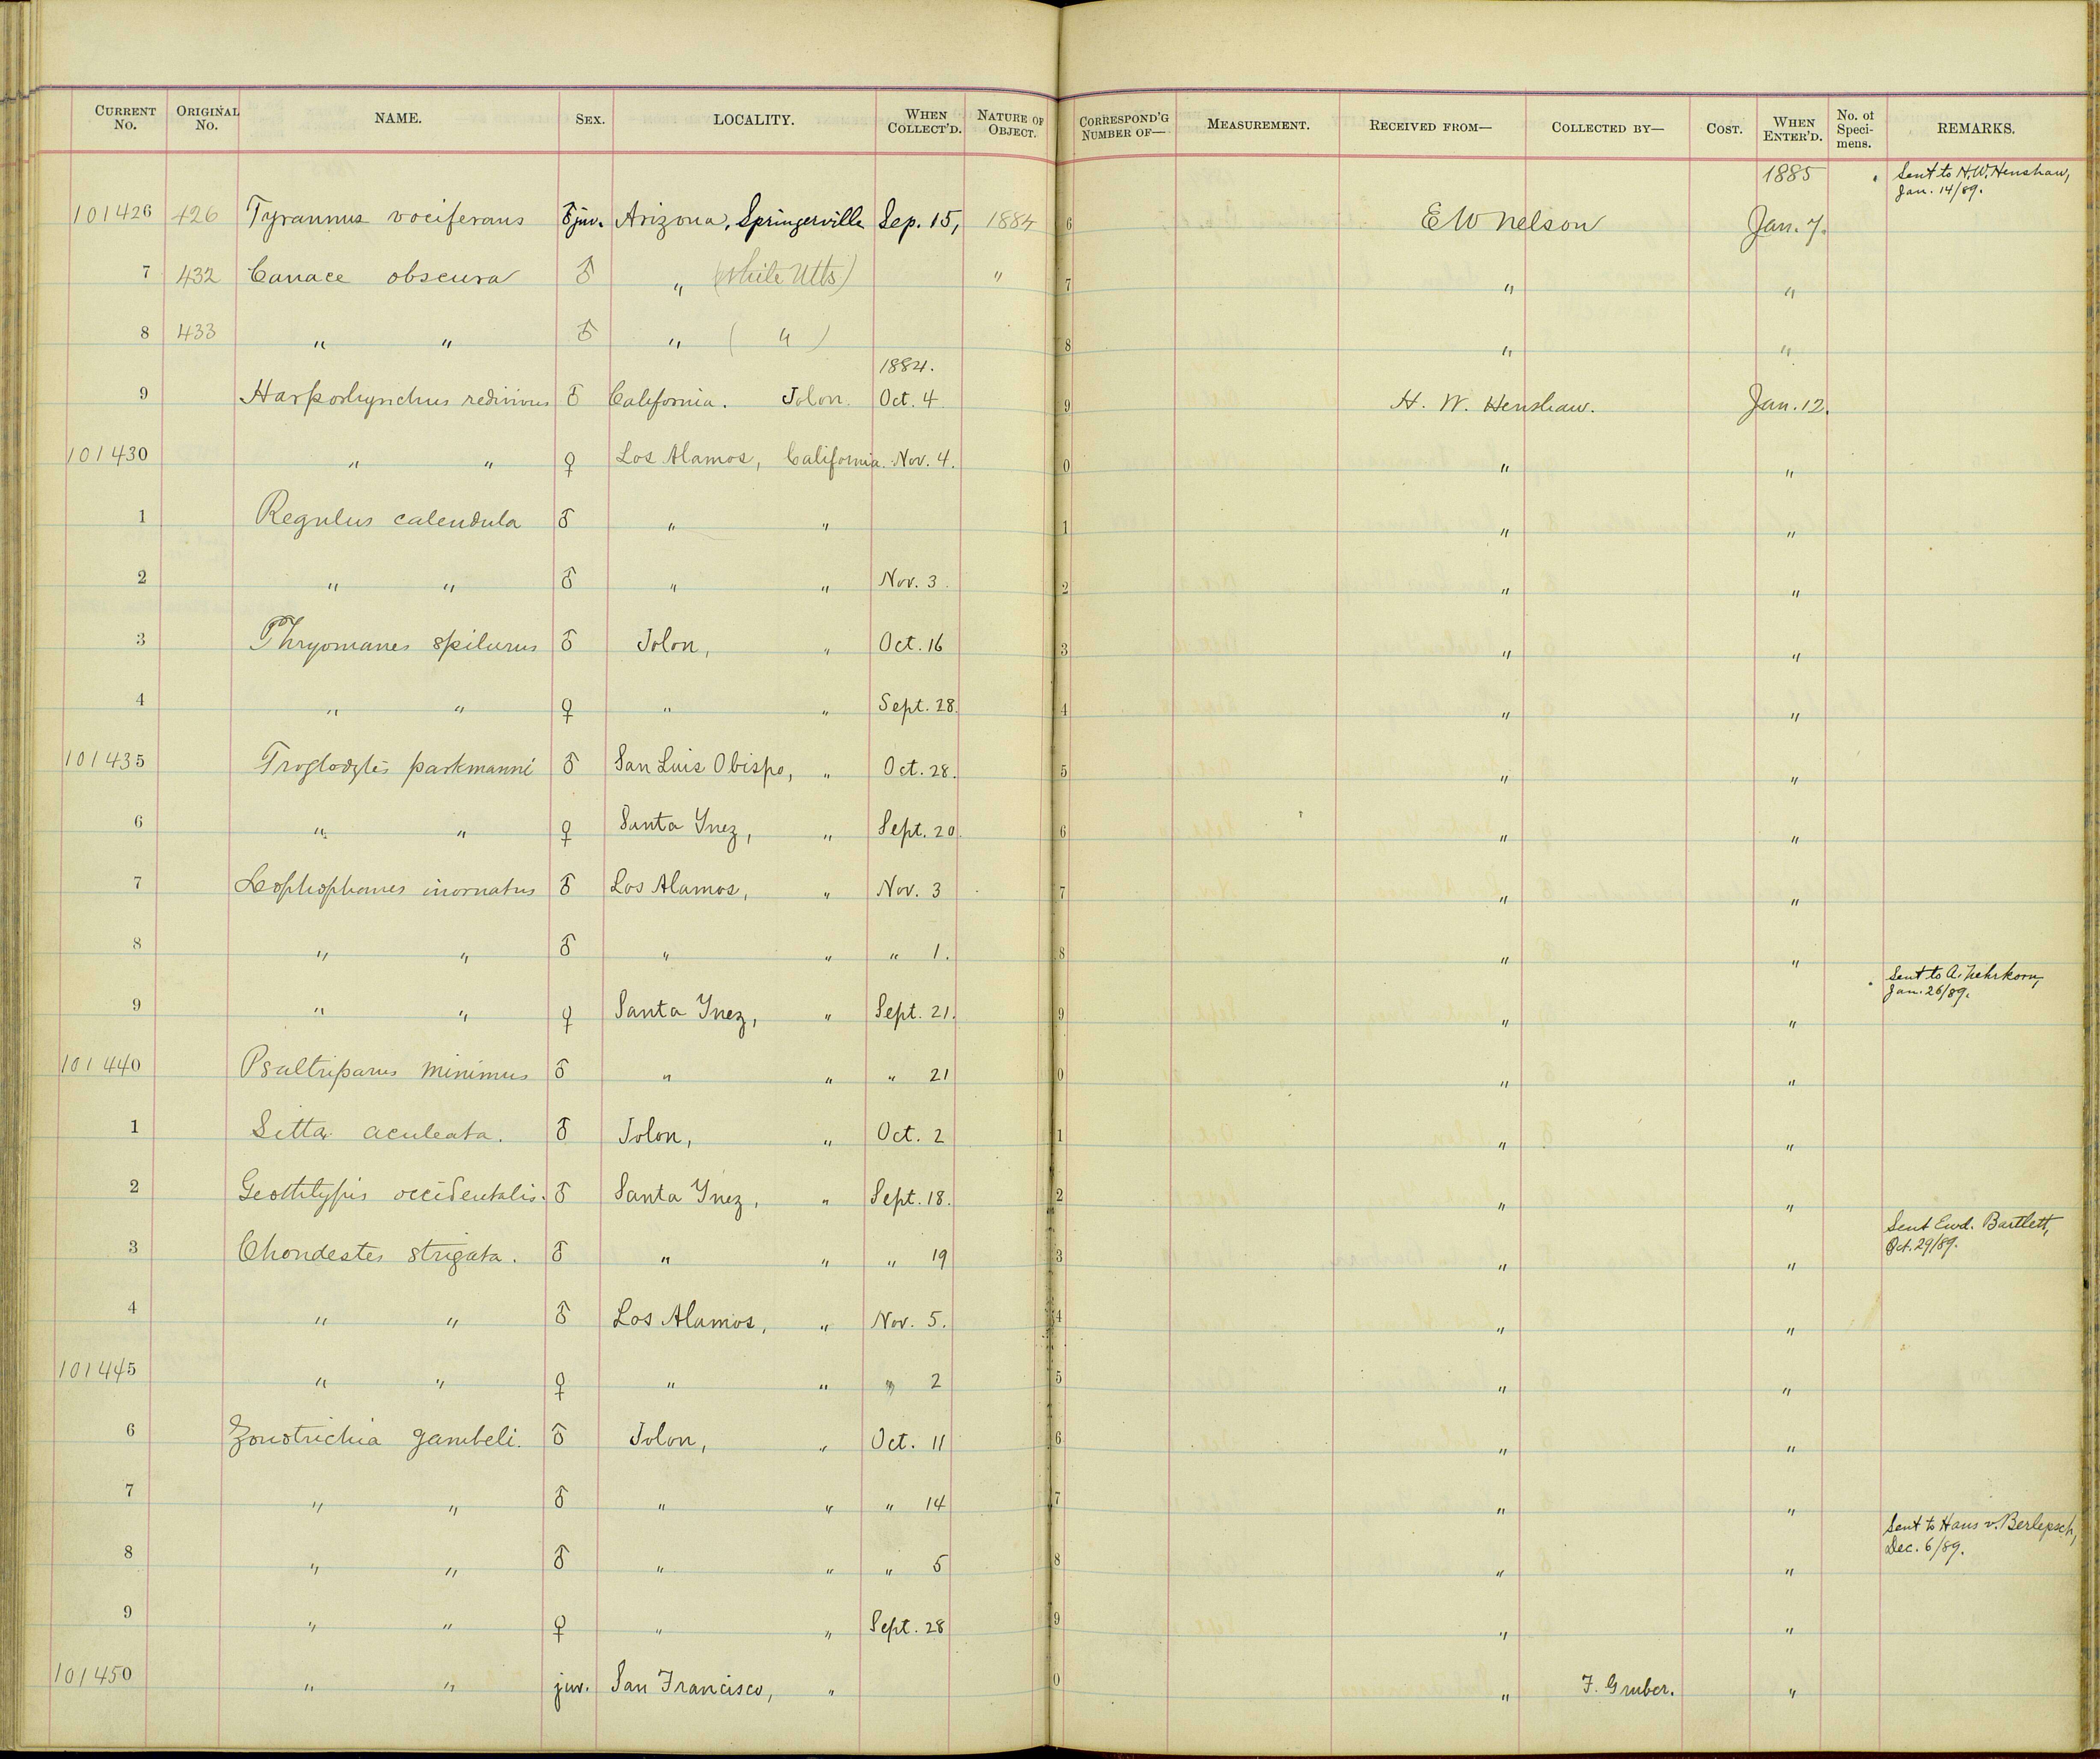 CURRENT No. ORIGINAL No. NAME. SEX. LOCALITY. WHEN COLLECT'D. NATURE OF OBJECT. CORRESPOND'G NUMBER OF— MEASUREMENT. RECEIVED FROM— COLLECTED BY— COST. WHEN ENTER'D. No. of Specimens. REMARKS.
1885 Sent to H.W. Henshaw,
Jan. 14/89.
101426 426 Tyrannus vociferans ♂ juv. Arizona, Springerville Sep. 15, 1884 6 E W Nelson Jan. 7.
7 432 Canace obscura ♂ " (White Mts) " 7 " "
8 433 " " ♂ " ( " ) 8 " "
1884.
9 Harporhynchus redivivus ♂ California. Jolon. Oct. 4 9 H. W. Henshaw. Jan. 12.
101430 " " ♀ Los Alamos, California. Nov. 4. 0 " "
1 Regulus calendula ♂ " " 1 " "
2 " " ♂ " " Nov. 3. 2 " "
3 Thryomanes spilurus ♂ Jolon, " Oct. 16 3 " "
4 " " ♀ " " Sept. 28. 4 " "
101435 Troglodytes parkmanni ♂ San Luis Obispo, " Oct. 28. 5 " "
6 " " ♀ Santa Ynez, " Sept. 20. 6 " "
7 Lophophanes inornatus ♂ Los Alamos, " Nov. 3 7 " "
8 " " ♂ " " " 1. 8 " "
Sent to A. Nehrkorn,
Jan. 26/89.
9 " " ♀ Santa Ynez, " Sept. 21. 9 " "
101440 Psaltriparus minimus ♂ " " " 21 0 " "
1 Sitta aculeata. ♂ Jolon, " Oct. 2 1 " "
2 Geothlypis occidentalis. ♂ Santa Ynez, " Sept. 18. 2 " "
Sent Ewd. Bartlett,
Oct. 29/89.
3 Chondestes strigata. ♂ " " " 19 3 " "
4 " " ♂ Los Alamos, " Nov. 5. 4 " "
101445 " " ♀ " " " 2 5 " "
6 Zonotrichia gambeli. ♂ Jolon, " Oct. 11 6 " "
7 " " ♂ " " " 14 7 " "
Sent to Hans v. Berlepsch,
Dec. 6/89.
8 " " ♂ " " " 5 8 " "
9 " " ♀ " " Sept. 28 9 " "
101450 " " juv. San Francisco, " 0 " F. Gruber. "